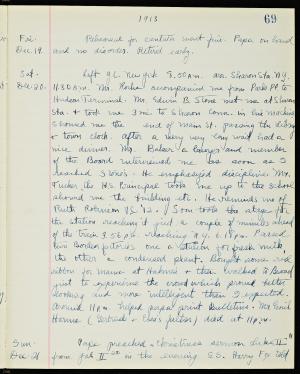 1913
69
Fri. Rehearsal for cantata went fine. Papa on hand
Dec. 19. and no disorder. Retired early.
Sat. Left J.C. New York 8.00 a.m. arr. Sharon Sta. N.Y.
Dec. 20. 11.30 a.m. Mr. accompanied me from Park Pl to
Hudson Terminal. Mr. Edwin B. Stone met me at Sharon
Sta. & took me 3 mi. to Sharon Conn. in his machine
showed me the end of main St. passing the library
& town clock. After a very very long wait had a
nice dinner. Mr. Baker a lawyer and member
of the Board interviewed me as soon as I
reached Stone's. He emphasized discipline. Mr.
Tucker the H.S. Principal took me up to the school
showed me the building etc. He reminds me of
Ruth Robinson Soon took the stage for
the station reaching it just a couple of minutes ahead
of the train 3.56 p.m. reaching N.Y. 6.18 p.m. Passed
two Borden factories one a station for fresh milk
the other a condensed plant. Bought some red
ribbon for mama at Hahne's & then walked to Broad
just to experience the crowd which proved better
clothed and more intelligent than I expected.
Around 11 p.m. helped papa print Bulletins. Mr. Emil
(Gertrude & Elsa's father) died at 11 p.m.
Sun. Papa preached a Christmas sermon Luke II
Dec. 21 from in the evening S.S. Harry For. told